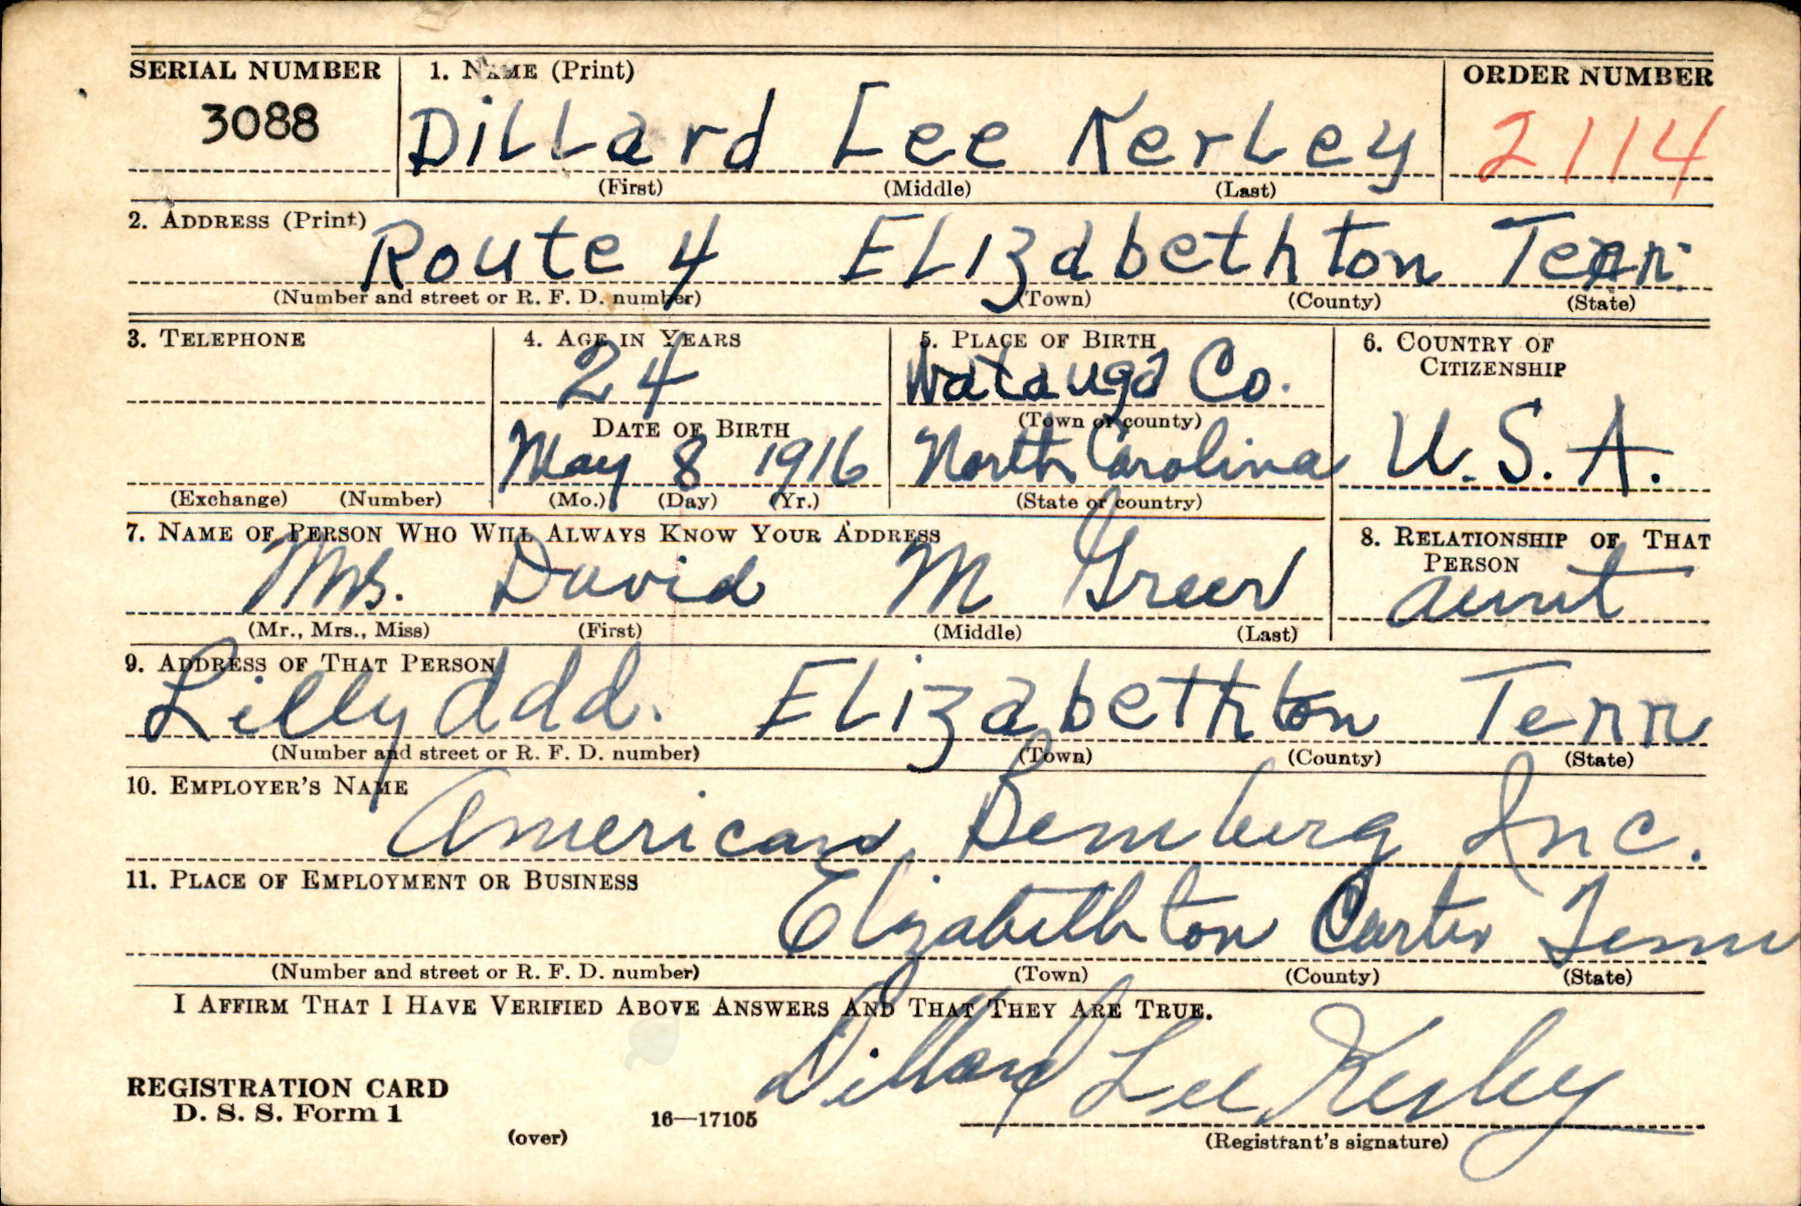 SERIAL NUMBER 1. NAME (Print) ORDER NUMBER
3088 Dillard Lee Kerley 2114
(First) (Middle) (Last)
2. ADDRESS (Print)
Route 4 Elizabethton Tenn.
(Number and street or R. F. D. number) (Town) (County) (State)
3. TELEPHONE 4. AGE IN YEARS 5. PLACE OF BIRTH 6. COUNTRY OF CITIZENSHIP
24 Watauga Co.
DATE OF BIRTH (Town or county)
May 8 1916 North Carolina U.S.A.
(Exchange) (Number) (Mo.) (Day) (Yr.) (State or country)
7. NAME OF PERSON WHO WILL ALWAYS KNOW YOUR ADDRESS 8. RELATIONSHIP OF THAT PERSON
Mrs. David M Greer aunt
(Mr., Mrs., Miss) (First) (Middle) (Last)
9. ADDRESS OF THAT PERSON
Lilly add. Elizabethton Tenn
(Number and street or R. F. D. number) (Town) (County) (State)
10. EMPLOYER'S NAME
American Bemberg Inc.
11. PLACE OF EMPLOYMENT OR BUSINESS
Elizabethton Carter Tenn
(Number and street or R. F. D. number) (Town) (County) (State)
I AFFIRM THAT I HAVE VERIFIED ABOVE ANSWERS AND THAT THEY ARE TRUE.
Dillard Lee Kerley
REGISTRATION CARD
D. S. S. Form 1 16—17105
(over) (Registrant's signature)